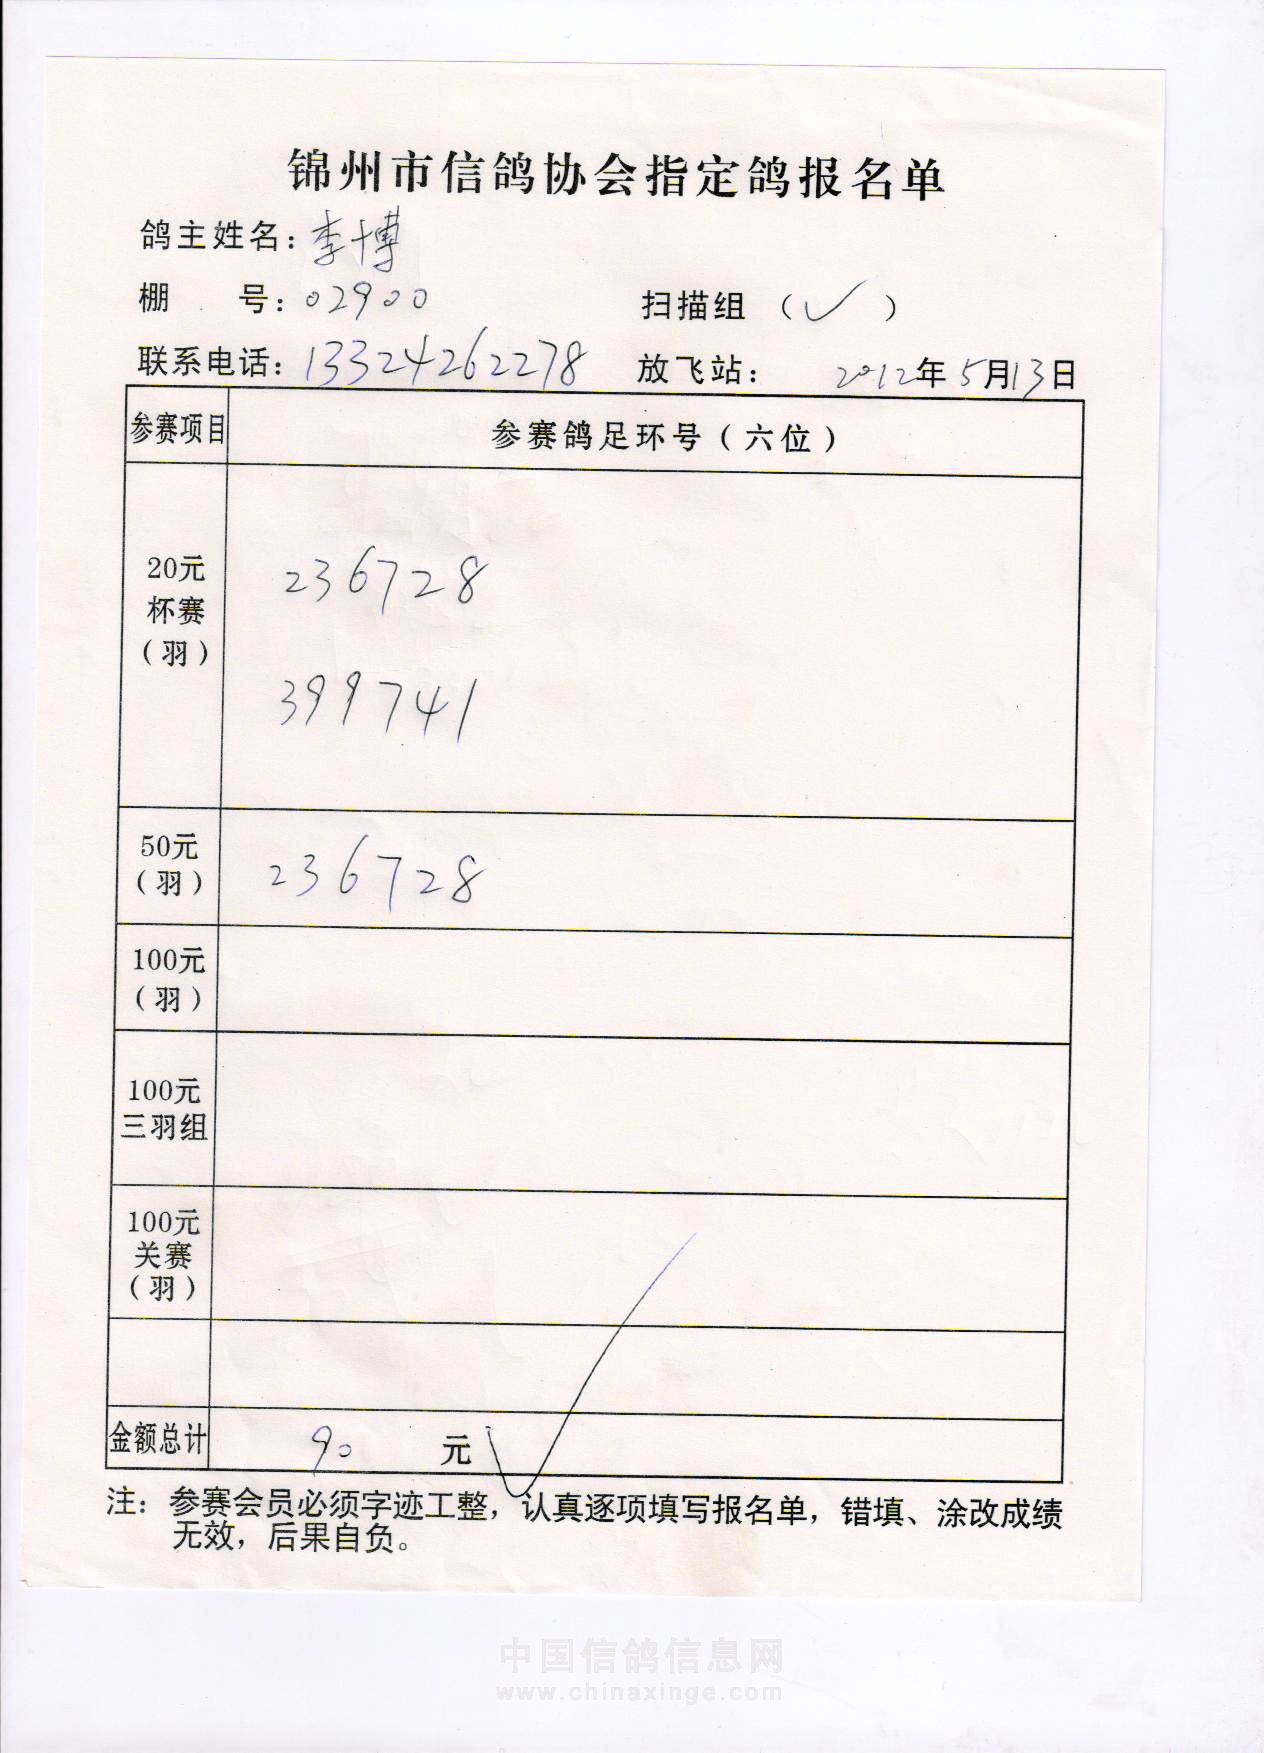 锦州市信鸽协会指定鸽报名单
鸽主姓名：李博
棚 号：02900 扫描组（✓）
联系电话：13324262278 放飞站： 2012年5月13日
参赛项目 参赛鸽足环号（六位）
20元
杯赛
（羽）
236728
399741
50元
（羽）
236728
100元
（羽）
100元
三羽组
100元
关赛
（羽）
金额总计 90 元
注：参赛会员必须字迹工整，认真逐项填写报名单，错填、涂改成绩
无效，后果自负。
中国信鸽信息网
www.chinaxinge.com